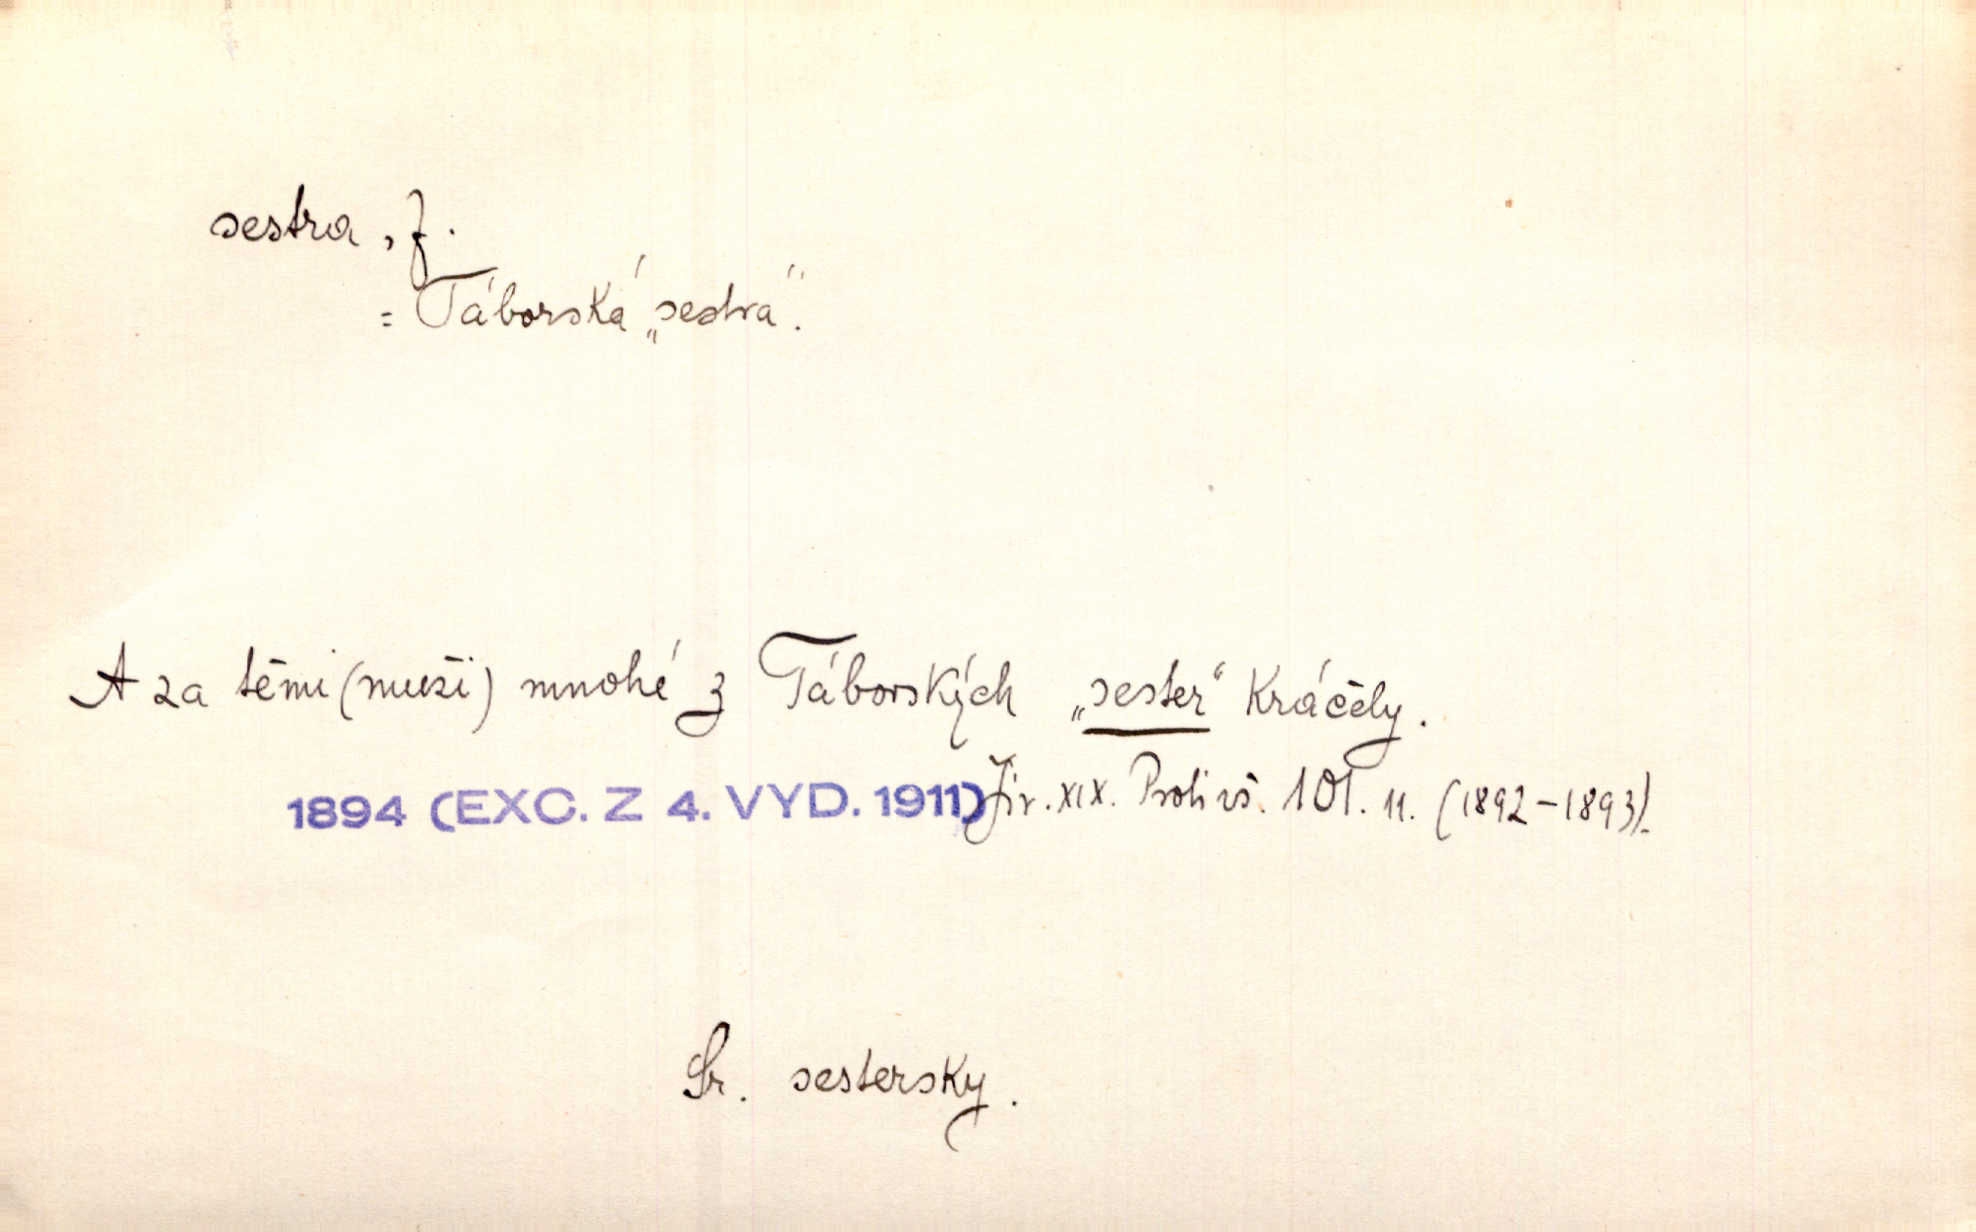 sestra, f.
= Táborská „sestra“.
A za těmi (muži) mnohé z Táborských „sester“ kráčely.
1894 (EXC. Z 4. VYD. 1911) Jir. XIX. Proti vš. 101. 11. (1892–1893).
Sr. sestersky.